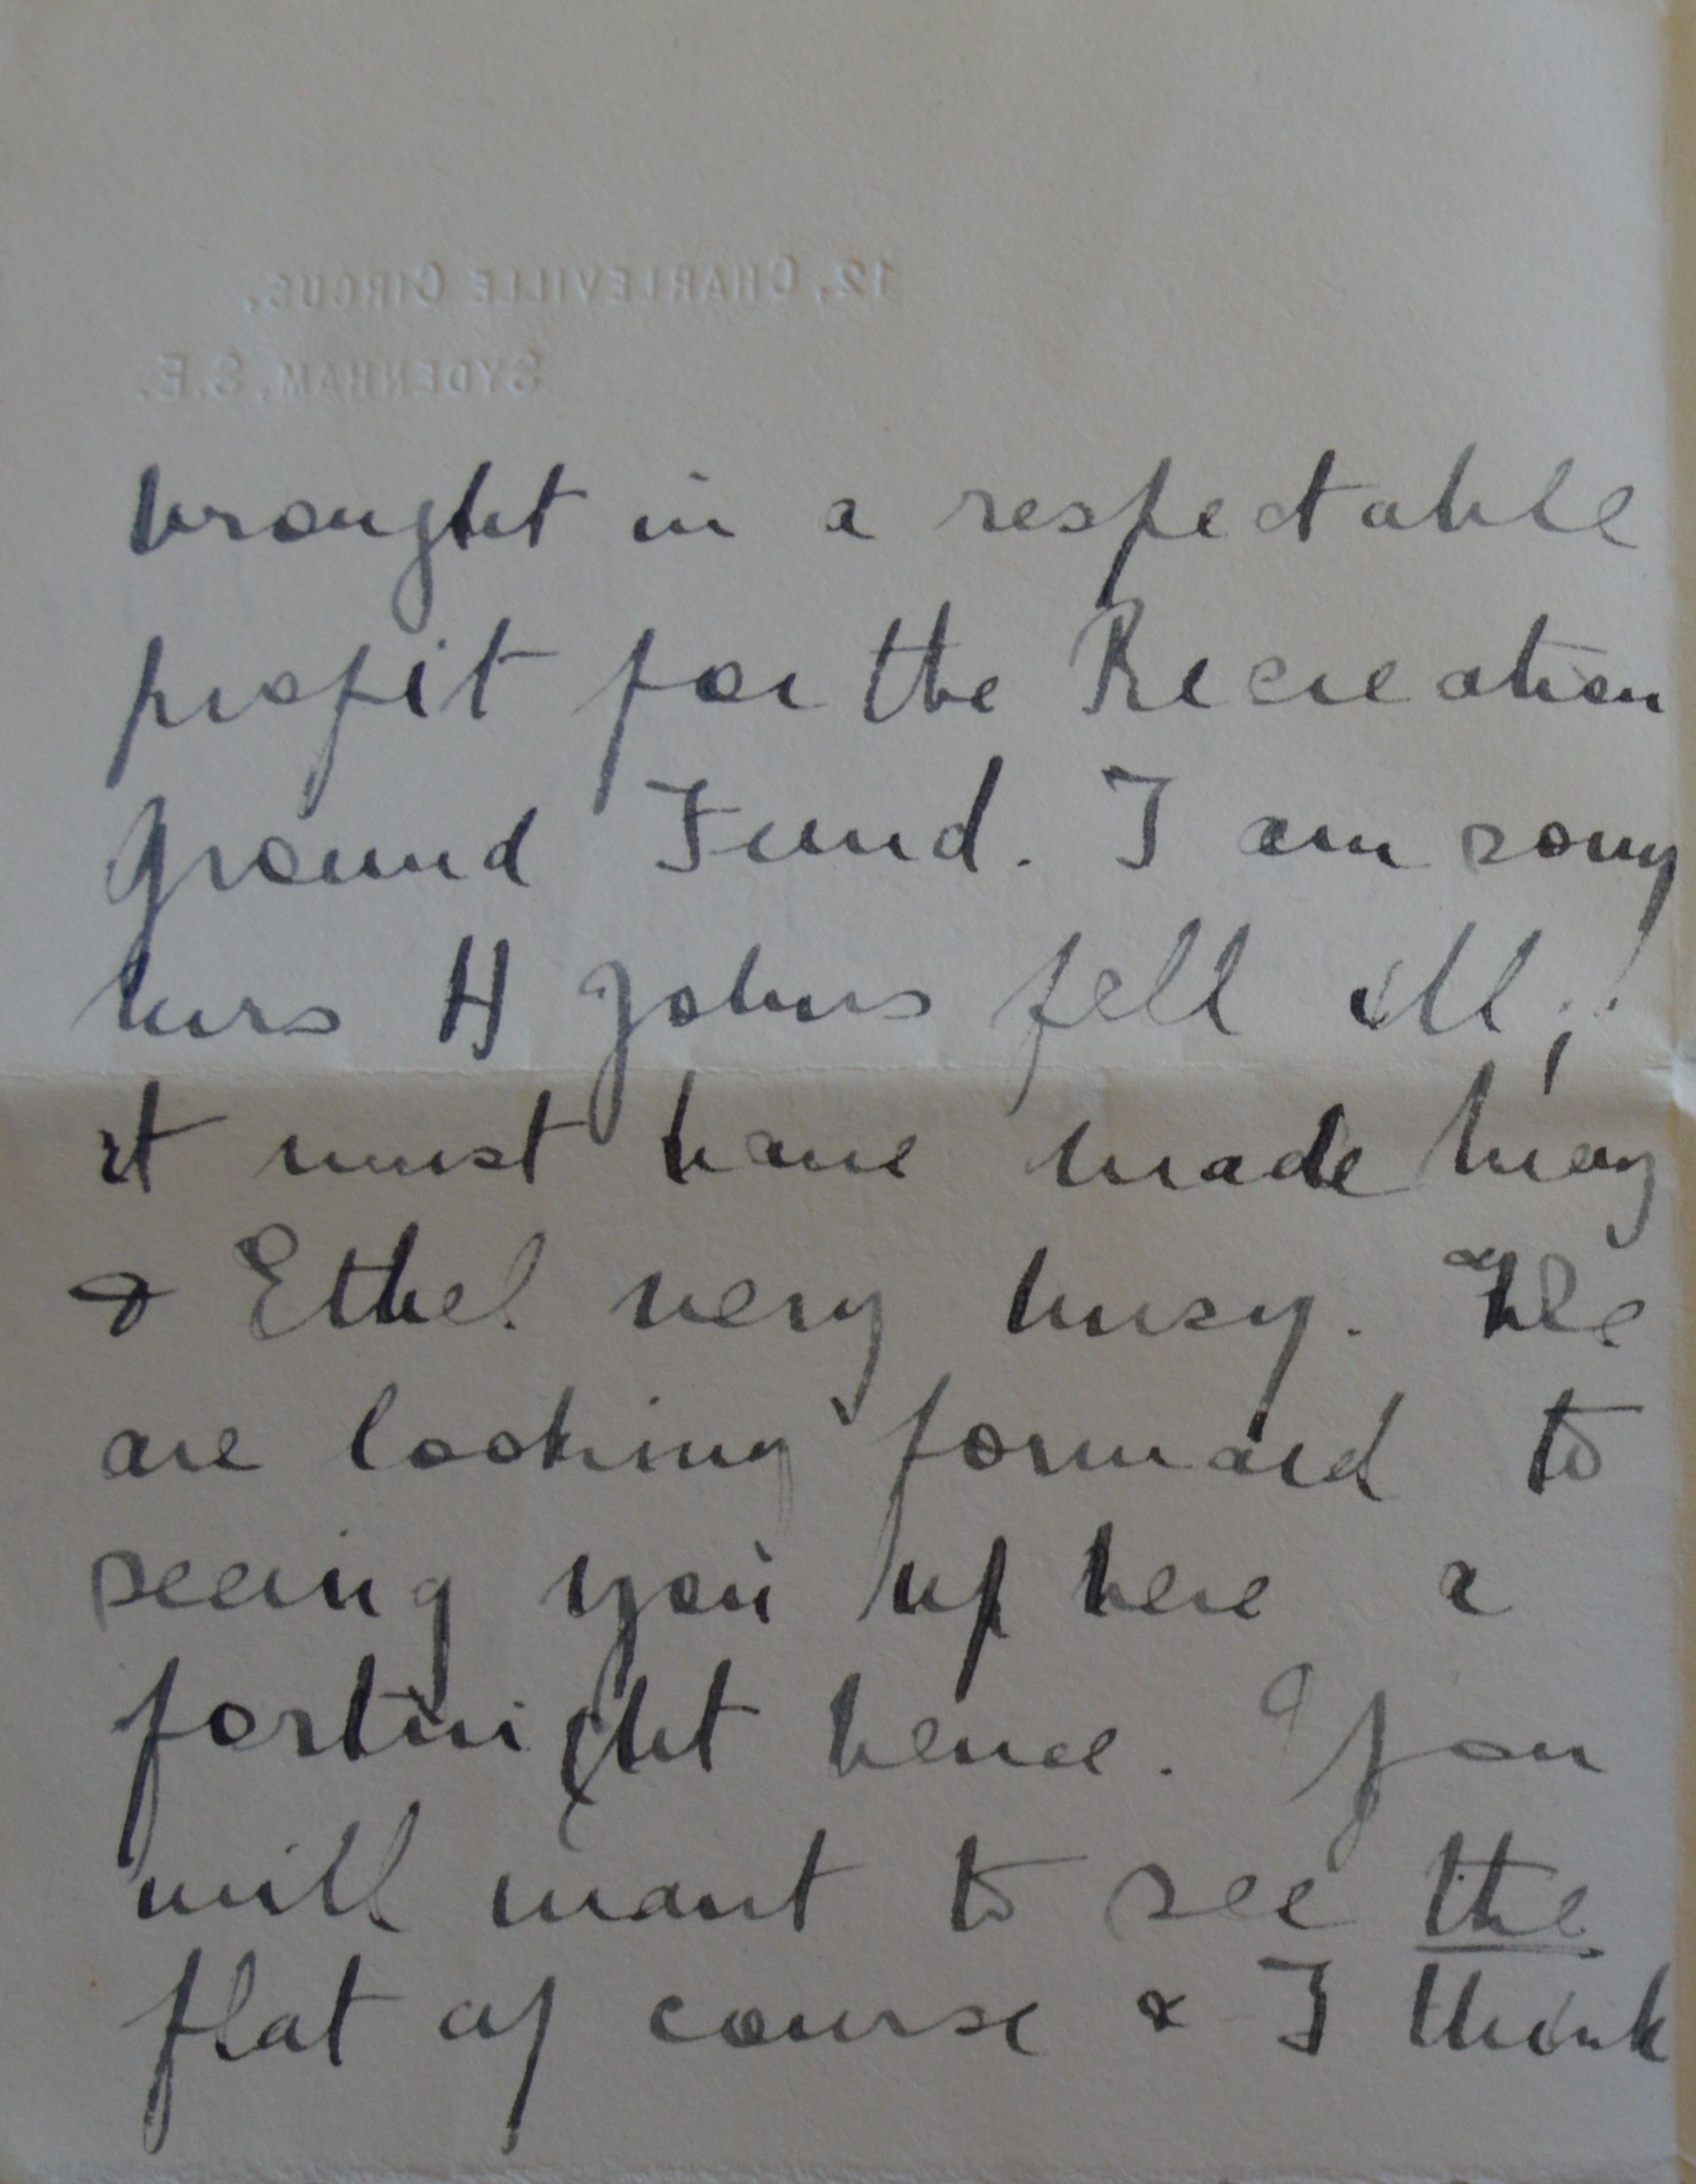 12, CHARLEVILLE CIRCUS,
SYDENHAM, S.E.
brought in a respectable
profit for the Recreation
ground Fund. I am sorry
Mrs H Johns fell ill;
it must have made May
& Ethel very busy. We
are looking forward to
seeing you up here a
fortnight hence. You
will want to see the
flat of course & I think